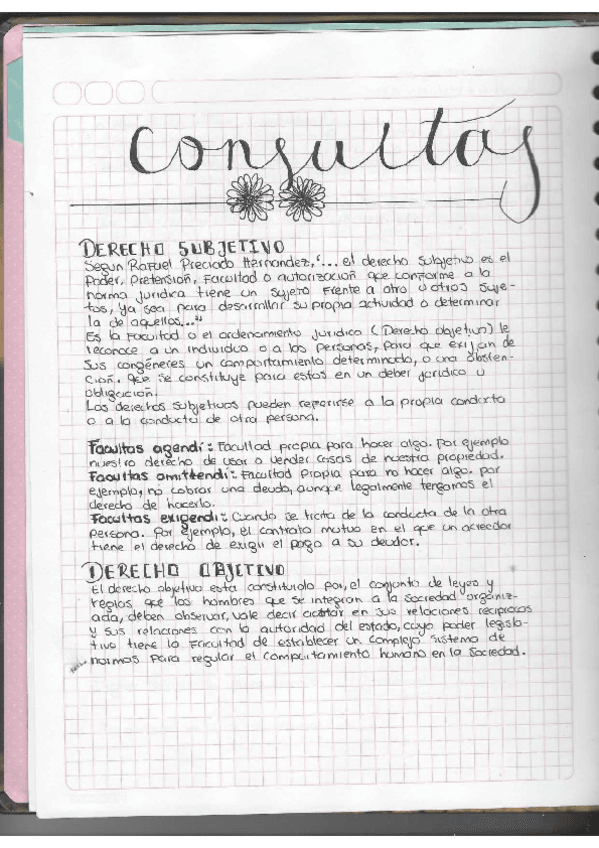 Consultas
DERECHO SUBJETIVO
Segun Rafael Preciado Hernandez, "... el derecho subjetivo es el
Poder, Pretensión, Facultad o autorización que conforme a la
norma jurídica tiene un sujeto frente a otro u otros suje-
tos, ya sea para desarrollar su propia actividad o determinar
la de aquellos..."
Es la Facultad o el ordenamiento jurídico (Derecho objetivo) le
reconoce a un individuo o a las personas, para que exijan de
sus congéneres un comportamiento determinado, o una absten-
ción. que se constituye para estos en un deber jurídico u
obligación.
Los derechos subjetivos pueden referirse a la propia conducta
o a la conducta de otra persona.
Facultas agendi: Facultad propia para hacer algo. Por ejemplo
nuestro derecho de usar o vender cosas de nuestra propiedad.
Facultas omittendi: Facultad propia para no hacer algo. por
ejemplo, no cobrar una deuda, aunque legalmente tengamos el
derecho de hacerlo.
Facultas exigendi: Cuando se trata de la conducta de la otra
persona. Por ejemplo, el contrato mutuo en el que un acreedor
tiene el derecho de exigir el pago a su deudor.
DERECHO OBJETIVO
El derecho objetivo esta constituido por, el conjunto de leyes y
reglas que los hombres que se integran a la sociedad organiz-
ada, deben observar, vale decir acatar en sus relaciones reciprocas
y sus relaciones con la autoridad del estado, cuyo poder legisla-
tivo tiene la Facultad de establecer un complejo sistema de
normas para regular el comportamiento humano en la sociedad.